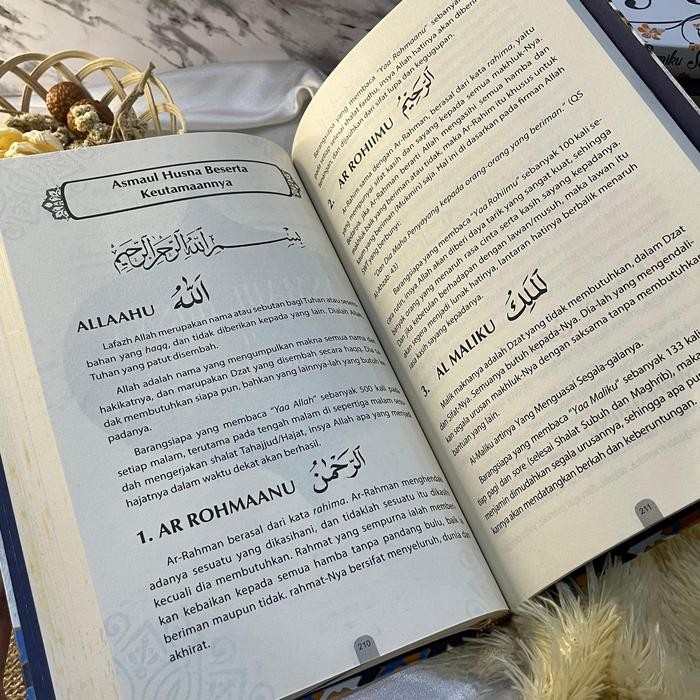 Asmaul Husna Beserta
Keutamaannya
بِسْمِ اللهِ الرَّحْمٰنِ الرَّحِيْمِ
ALLAAHU اَللهُ
Lafazh Allah merupakan nama atau sebutan bagi Tuhan atau
bahan yang haqq, dan tidak diberikan kepada yang lain. Dialah Allah
Tuhan yang patut disembah.
Allah adalah nama yang mengumpulkan makna semua nama dan
hakikatnya, dan marupakan Dzat yang disembah secara haqq, Dia
dak membutuhkan siapa pun, bahkan yang lainnya-lah yang butuh
padanya.
Barangsiapa yang membaca "Yaa Allah" sebanyak 500 kali pada
setiap malam, terutama pada tengah malam di sepertiga malam
dah mengerjakan shalat Tahajjud/Hajat, insya Allah apa yang menjadi
hajatnya dalam waktu dekat akan berhasil.
1. AR ROHMAANU اَلرَّحْمٰنُ
Ar-Rahman berasal dari kata rahima. Ar-Rahman menghendaki
adanya sesuatu yang dikasihani, dan tidaklah sesuatu itu dikasihi
kecuali dia membutuhkan. Rahmat yang sempurna ialah
kan kebaikan kepada semua hamba tanpa pandang bulu, baik
beriman maupun tidak. rahmat-Nya bersifat menyeluruh, dunia
akhirat.
210
Barangsiapa yang membaca "Yaa Rohmaanu" sebanyak
selesai shalat fardhu, insya Allah hatinya akan diberi
dan dijauhkan dari sifat lupa dan kegugupan.
2. AR ROHIIMU اَلرَّحِيْمُ
Ar-Rahim sama dengan Ar-Rahman, berasal dari kata rahima, yaitu
mempunyai sifat kasih dan sayang kepada semua makhluk-Nya.
Bedanya, jika Ar-Rahman berarti Allah mengasihi semua hamba dan
makhluk baik yang beriman atau tidak, maka Ar-Rahim itu khusus untuk
kaum yang beriman (Mukmin) saja. Hal ini di dasarkan pada firman Allah
yang berbunyi:
"Dan Dia Maha Penyayang kepada orang-orang yang beriman." (QS
Al-Ahzab: 43)
Barangsiapa yang membaca "Yaa Rohiimu" sebanyak 100 kali se-
cara rutin, insya Allah akan diberi daya tarik yang sangat kuat, sehingga
banyak orang yang menaruh rasa cinta serta kasih sayang kepadanya.
Dan jika kebetulan berhadapan dengan lawan/musuh, maka lawan itu
akan segera menjadi lunak hatinya, lantaran hatinya berbalik menaruh
rasa kasih sayang kepadanya.
3. AL MALIKU اَلْمَلِكُ
Malik maknanya adalah Dzat yang tidak membutuhkan, dalam Dzat
dan Sifat-Nya. Semuanya butuh kepada-Nya. Dia-lah yang mengendali
kan segala urusan mahkluk-Nya dengan saksama tanpa membutuhkan
bantuan yang lain.
Al-Maliku artinya Yang Menguasai Segala-galanya.
Barangsiapa yang membaca "Yaa Maliku" sebanyak 133 kali
tiap pagi dan sore (selesai Shalat Subuh dan Maghrib), maka
menjamin dimudahkan segala urusannya, sehingga apa
kannya akan mendatangkan berkah dan keberuntungan.
211